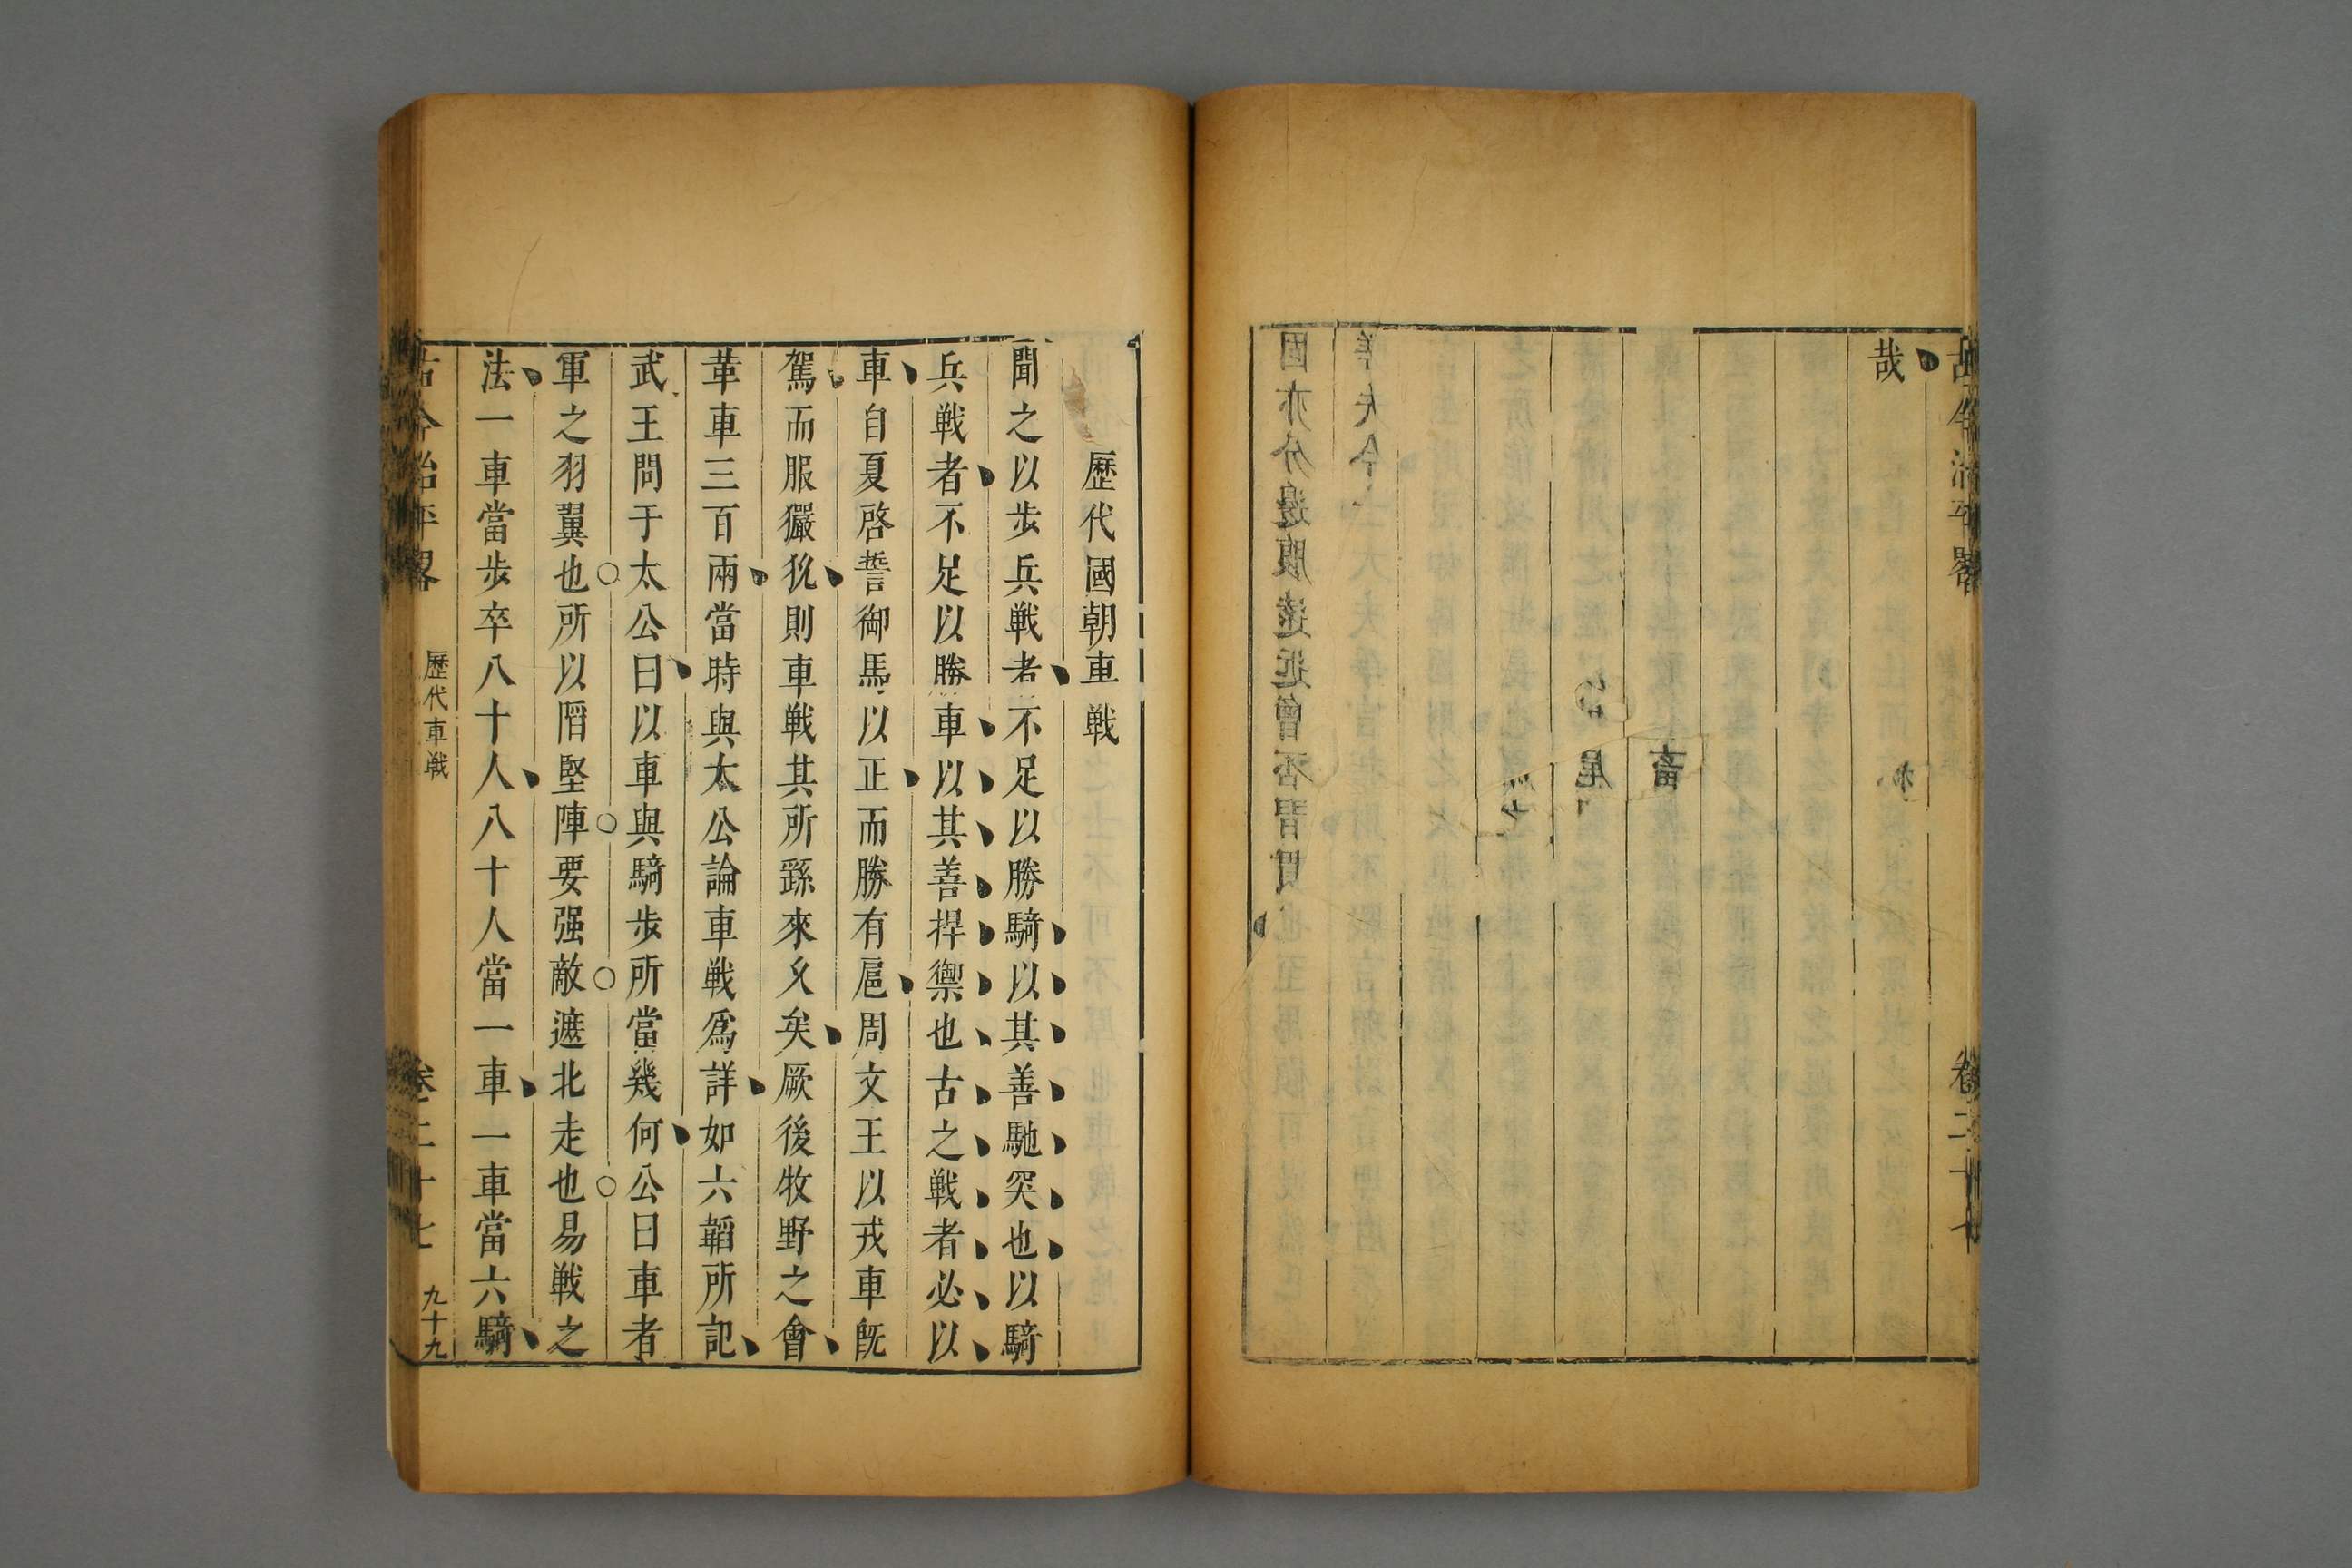 古今治平畧
卷二十七
哉
歷代國朝車戦
聞之以歩兵戦者不足以勝騎以其善馳突也以騎
兵戦者不足以勝車以其善捍禦也古之戦者必以
車自夏啓誓御馬以正而勝有扈周文王以戎車既
駕而服玁狁則車戦其所繇來久矣厥後牧野之會
革車三百兩當時與太公論車戦爲詳如六韜所記
武王問于太公曰以車與騎歩所當幾何公曰車者
軍之羽翼也所以䧟堅陣要强敵遮北走也易戦之
法一車當歩卒八十人八十人當一車一車當六騎
古今治平畧
歷代車戦
卷二十七
九十九